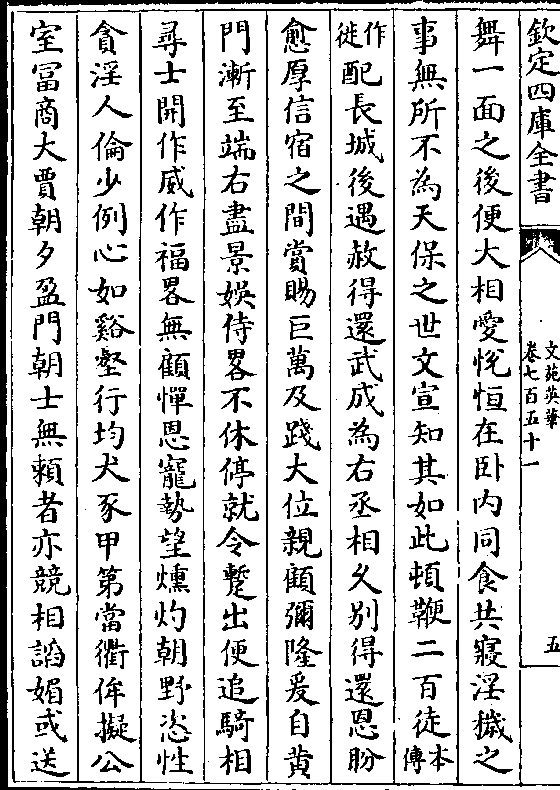 欽定四庫全書
文苑英華
卷七百五十一
五
舞一面之後便大相愛恱恒在卧内同食共寢淫穢之
事無所不為天保之世文宣知其如此頓鞭二百徒本傳
作徙配長城後遇赦得還武成為右丞相乆别得還恩盻
愈厚信宿之間賞賜巨萬及踐大位親顧彌隆爰自黄
門漸至端右盡景娛侍畧不休停就令蹔出便追騎相
尋士開作威作福畧無顧憚恩寵勢望燻灼朝野恣性
貪淫人倫少例心如谿壑行均犬豕甲第當衢侔擬公
室冨商大賈朝夕盈門朝士無賴者亦競相謟媚或送